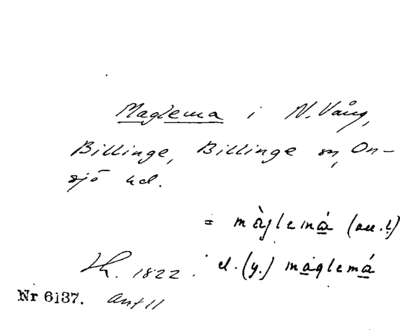 Maglema i N. Vång,
Billinge, Billinge sn, On-
sjö hd.
= màglemá (au. l.)
Lh. 1822. el. (y.) maglemá
Nr 6137. ant 11